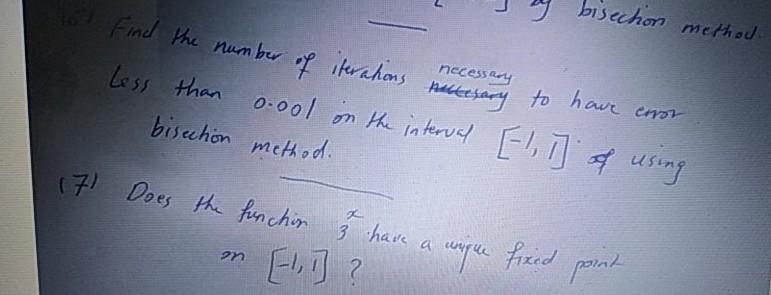 by bisection method.
(6) Find the number of iterations necessary to have error
less than 0.001 on the interval [-1, 1] of using
bisection method.
(7) Does the function 3^x have a unique fixed point
on [-1, 1] ?